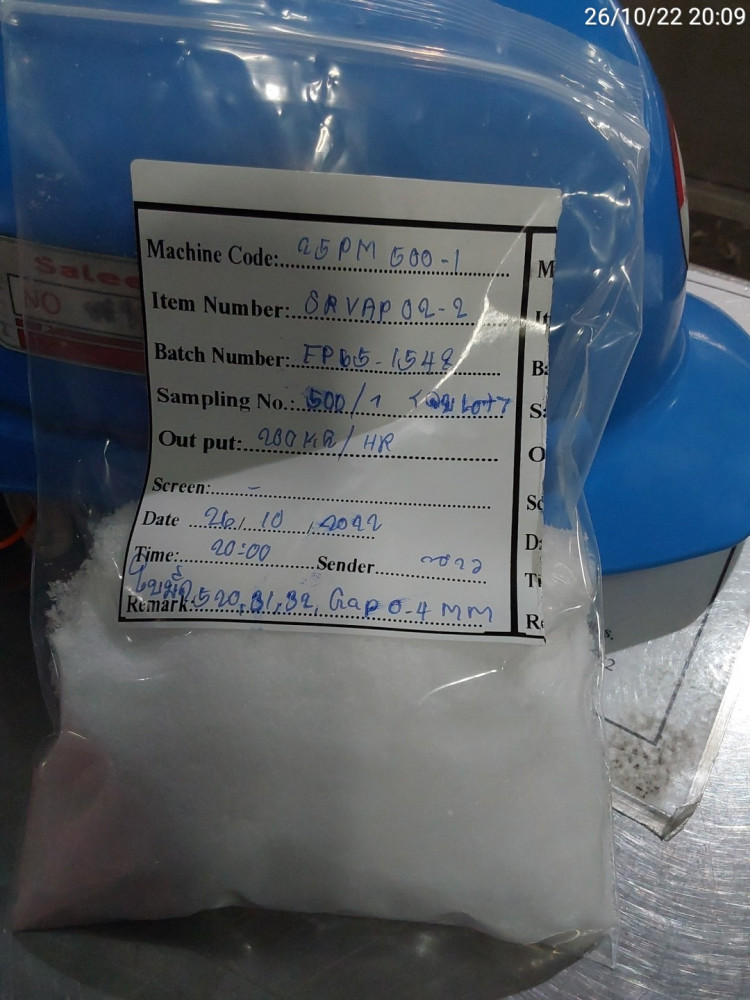 26/10/22 20:09
Salee
NO
Machine Code: 25PM 500-1
Item Number: SRVAP02-2
Batch Number: EP65-1548
Sampling No.: 500/1
Out put: 200 KG/HR
Screen: -
Date 26/10/2022
Time: 20:00 Sender
Remark: ใบมีด 520,31,32, Gap 0.4 MM
M
It
B:
S:
O
Sc
D:
Ti
Re
s.
2